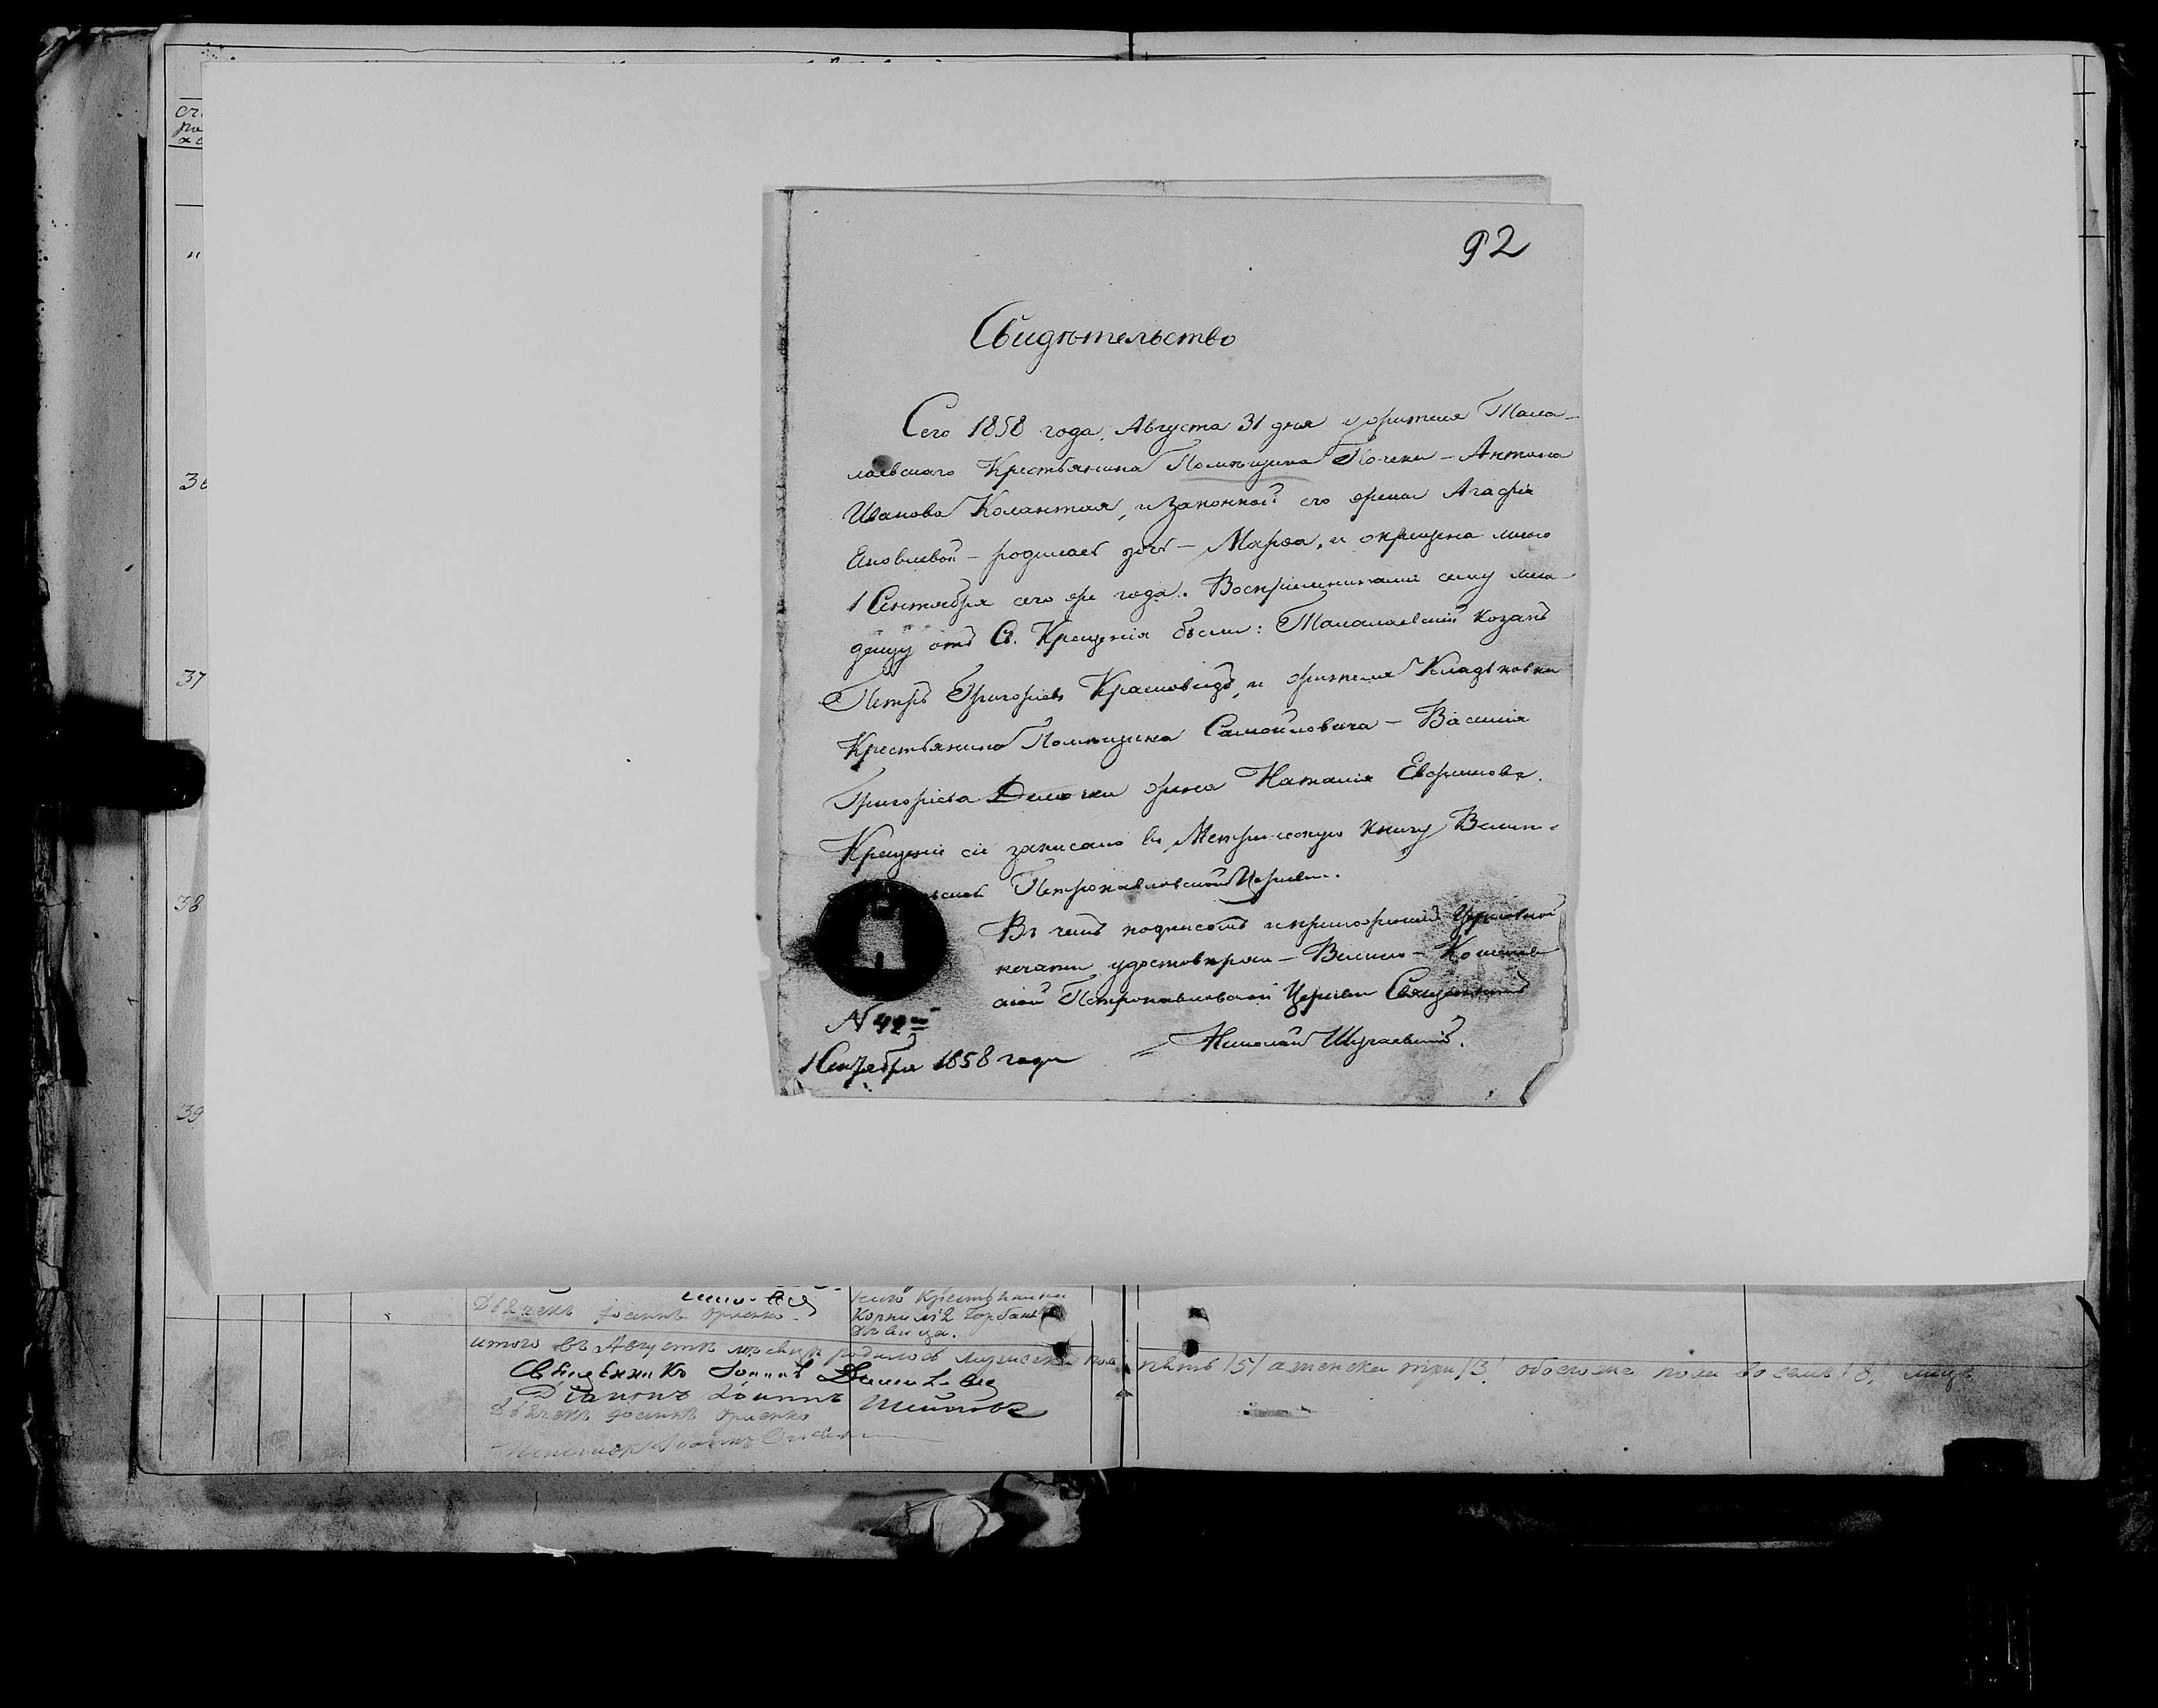 92
Свидѣтельство
Сего 1858 года, Августа 31 дня у жителя Тала-
лаевскаго Крестьянина Помѣщика Почеки – Антона
Иванова Колантая, и законной его жены Агафіи
Яковлевой – родилась дочь – Марѳа, и окрещена мною
1 Сентября сего же года. Воспріемниками сему мла-
денцу отъ Св. Крещенія были: Талалаевскій козакъ
Петръ Григорьевъ Красовидъ, и жителя Кладьковки
Крестьянина Помѣщика Самойловича – Василія
Григорьева жена Наталія Евфимова.
Крещеніе сіе записано въ Метрическую книгу Вели-
Петропавловской Церкви.
Въ чемъ подписомъ и приложеніемъ Церковной
печати удостовѣряю – Велико-
ской Петропавловской Церкви Священникъ
N 42
Николай
1 Сентября 1858 года
36
37
38
39
Дьячекъ Іоаннъ
Корнилія Горбаня
Дѣвица.
итого въ Августѣ мѣсяцѣ родилось мужеска пола пять /5/ а женска три /3/ обоего же пола восемь /8/ лицъ
Священникъ Іоаннъ
Діаконъ Іоаннъ
Дьячекъ Іоаннъ
Пономарь Іоаннъ